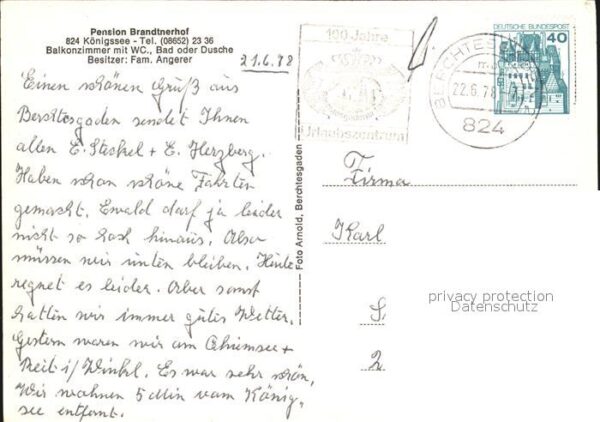 Pension Brandtnerhof
824 Königssee - Tel. (08652) 23 36
Balkonzimmer mit WC., Bad oder Dusche
Besitzer: Fam. Angerer
21.6.78
Einen schönen Gruß aus
Berchtesgaden sendet Ihnen
allen E. Steckel + E. Herzberg.
Haben schon schöne Fahrten
gemacht. Ewald darf ja leider
nicht so hoch hinaus. Also
müssen wir unten bleiben. Heute
regnet es leider. Aber sonst
hatten wir immer gutes Wetter.
Gestern waren wir am Chiemsee +
Reit i/ Winkl. Es war sehr schön,
Wir wohnen 5 Min vom König-
see entfernt.
Foto Arnold, Berchtesgaden
100 Jahre
Urlaubszentrum
BERCHTESGADEN
22.6.78
824
DEUTSCHE BUNDESPOST
40
Firma
Karl
S
2
privacy protection
Datenschutz